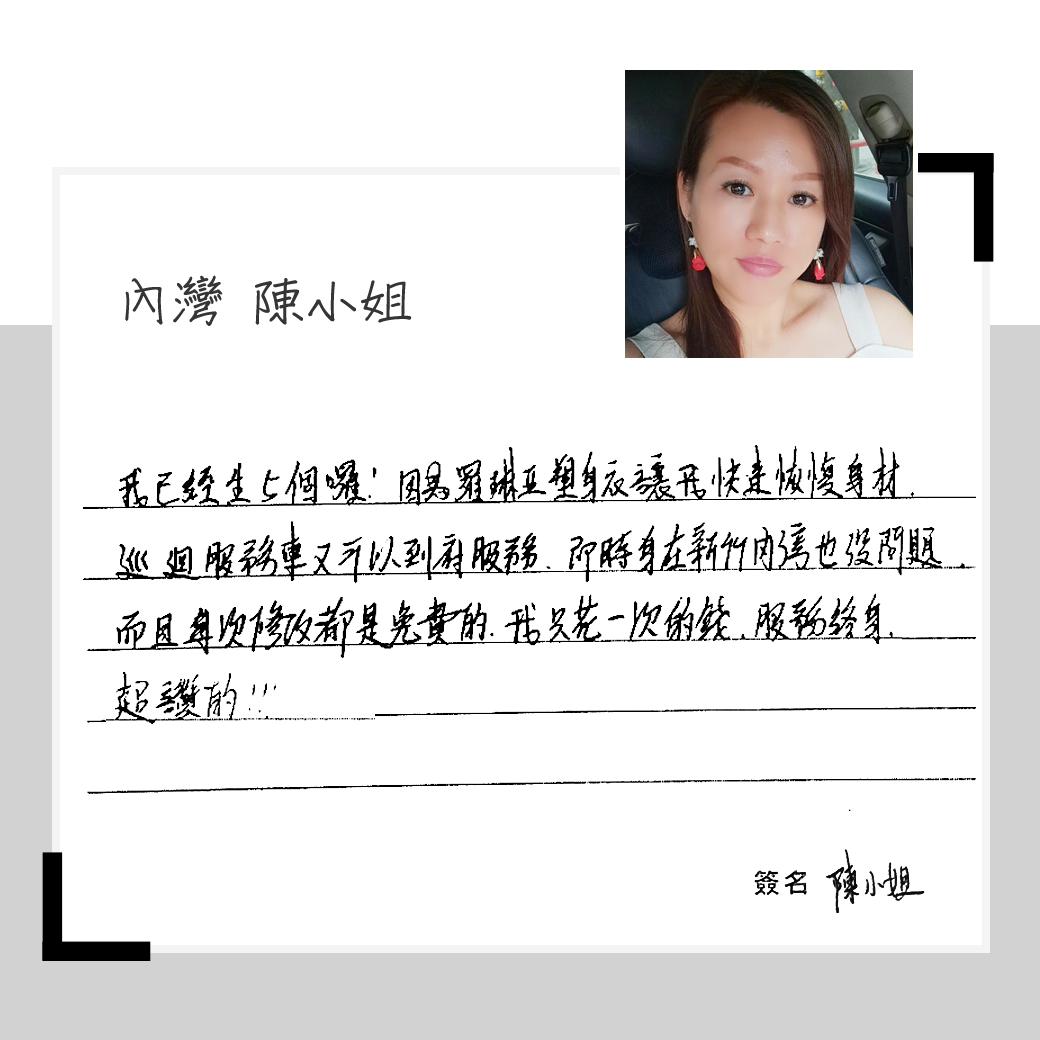 內灣 陳小姐
我已經生5個囉！因為羅琳亞塑身衣讓我快速恢復身材.
巡迴服務車又可以到府服務. 即時身在新竹內灣也沒問題.
而且每次修改都是免費的. 我只花一次的錢. 服務終身.
超讚的!!!
簽名 陳小姐